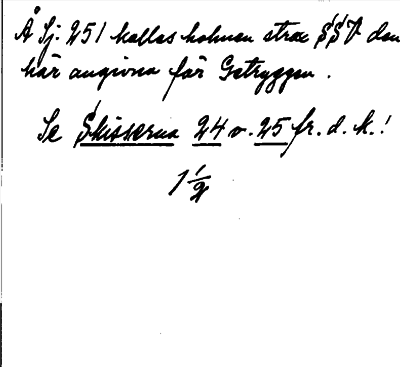 Å Sj: 251 kallas holmen strax SSV den
här angivna för Getryggen.
Se Skisserna 24 o. 25 fr. d. k.!
1 1/2